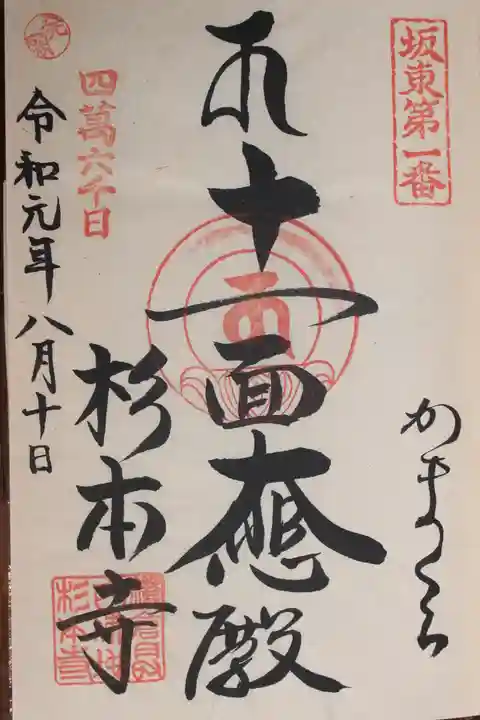 坂東第一番
かまくら
十一面大悲殿
杉本寺
四萬六千日
令和元年八月十日
杉本寺